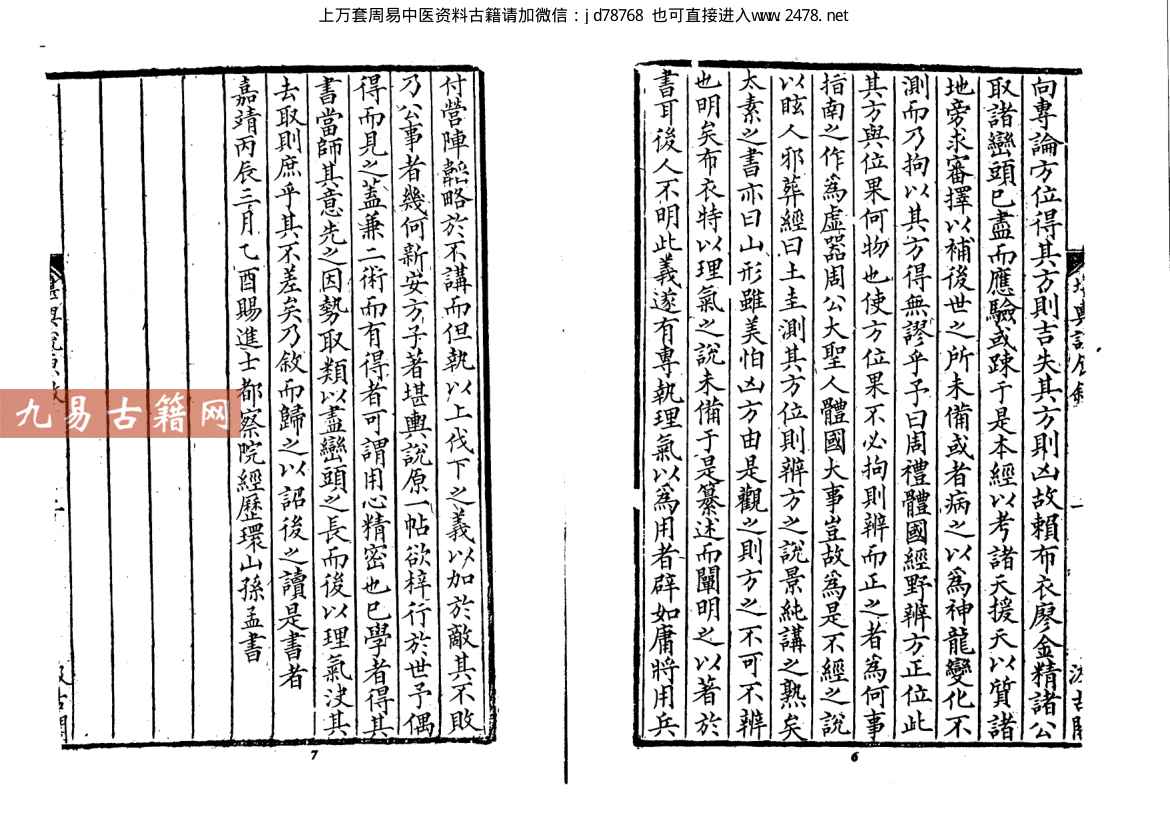 上万套周易中医资料古籍请加微信：jd78768 也可直接进入www.2478.net
向專論方位得其方則吉失其方則凶故賴布衣廖金精諸公
取諸巒頭已盡而應驗或踈于是本經以考諸天援天以質諸
地旁求審擇以補後世之所未備或者病之以為神龍變化不
測而乃拘以其方得無謬乎予曰周禮體國經野辨方正位此
其方與位果何物也使方位果不必拘則辨而正之者為何事
指南之作為虛器周公大聖人體國大事豈故為是不經之說
以眩人邪葬經曰土圭測其方位則辨方之說景純講之熟矣
太素之書亦曰山形雖美怕凶方由是觀之則方之不可不辨
也明矣布衣特以理氣之說未備于是纂述而闡明之以著於
書耳後人不明此義遂有專執理氣以為用者辟如庸將用兵
6
付營陣韜略於不講而但執以上伐下之義以加於敵其不敗
乃公事者幾何新安方子著堪輿說原一帖欲梓行於世予偶
得而見之蓋兼二術而有得者可謂用心精密也已學者得其
書當師其意先之因勢取類以盡巒頭之長而後以理氣決其
去取則庶乎其不差矣乃敘而歸之以詔後之讀是書者
嘉靖丙辰三月乙酉賜進士都察院經歷環山孫孟書
7
九易古籍网